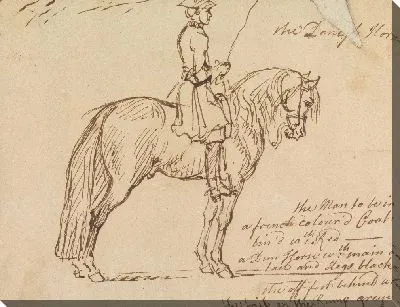 the Danish Hors
the Man to be in
a french colour'd Coat
lin'd with Red
a Dun Horse wth main a
tail and legs black
the off foot behind w